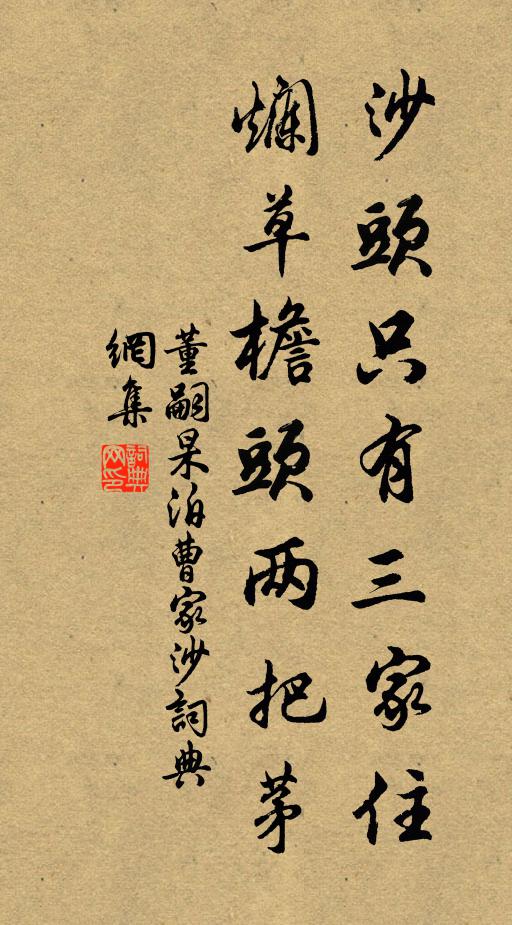 沙頭只有三家住
爛草檐頭两把茅
董嗣杲泊曹家沙詞典
網集
詞典
网印